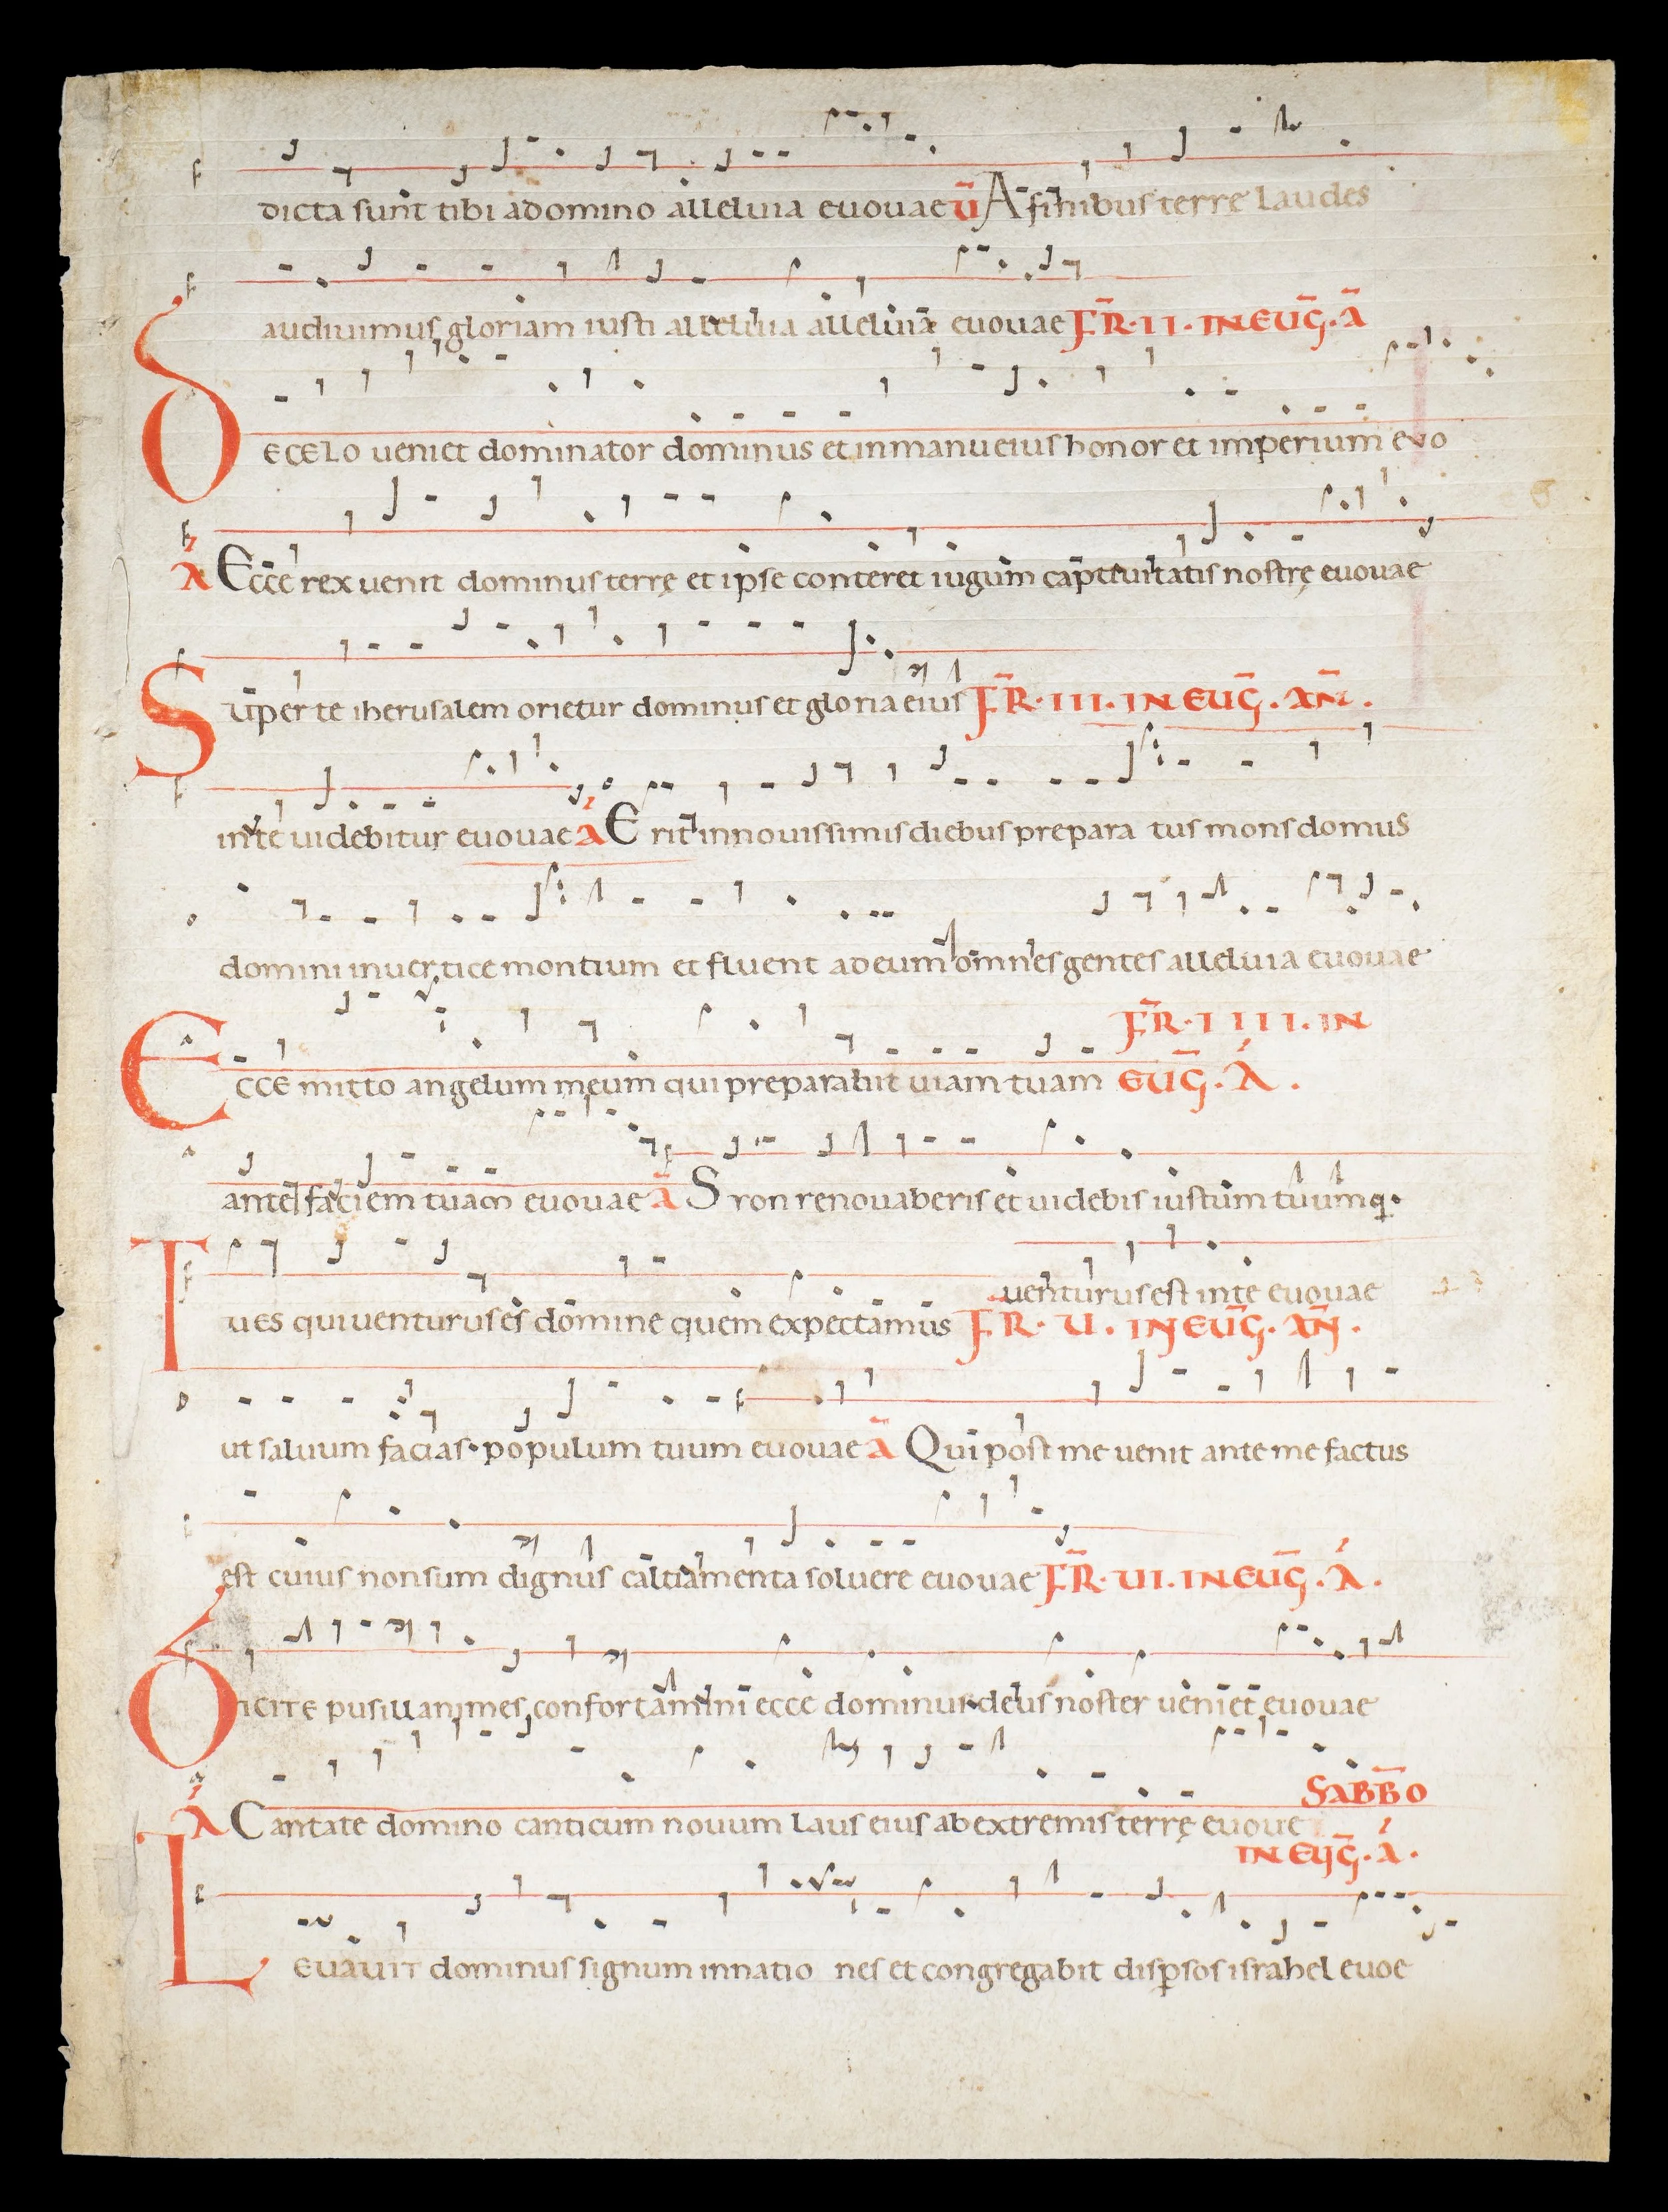 dicta sunt tibi adomino alleluia euouae ū A finibus terrę laudes
audiuimus gloriam iusti alleluia alleluia euouae FR̄·II·IN EUḠ·Ā
DE CELO ueniet dominator dominus et inmanu eius honor et imperium euo
Ā Ecce rex uenit dominus terrę et ipse conteret iugum captiuitatis nostrę euouae
Super te iherusalem orietur dominus et gloria eius FR̄·III·IN EUḠ·AN̄·
inte uidebitur euouae Ā Erit innouissimis diebus preparatus mons domus
domini inuertice montium et fluent adeum omnes gentes alleluia euouae
FR̄·IIII·IN
ECCE mitto angelum meum qui preparabit uiam tuam EUḠ·Ā·
ante faciem tuam euouae Ā Sron renouaberis et uidebis iustum tuum q·
uenturus est inte euouae
TU ES qui uenturus es domine quem expectamus FR̄·U·IN EUḠ·AN̄·
ut saluum facias populum tuum euouae Ā Qui post me uenit ante me factus
est cuius non sum dignus caltiamenta soluere euouae FR̄·UI·IN EUḠ·Ā·
DICITE pusillanimes confortamini ecce dominus deus noster ueniet euouae
SABB̄O
Ā Cantate domino canticum nouum laus eius ab extremis terrę euoue
IN EUḠ·Ā·
LEUAUIT dominus signum innationes et congregabit disꝑsos israhel euoe